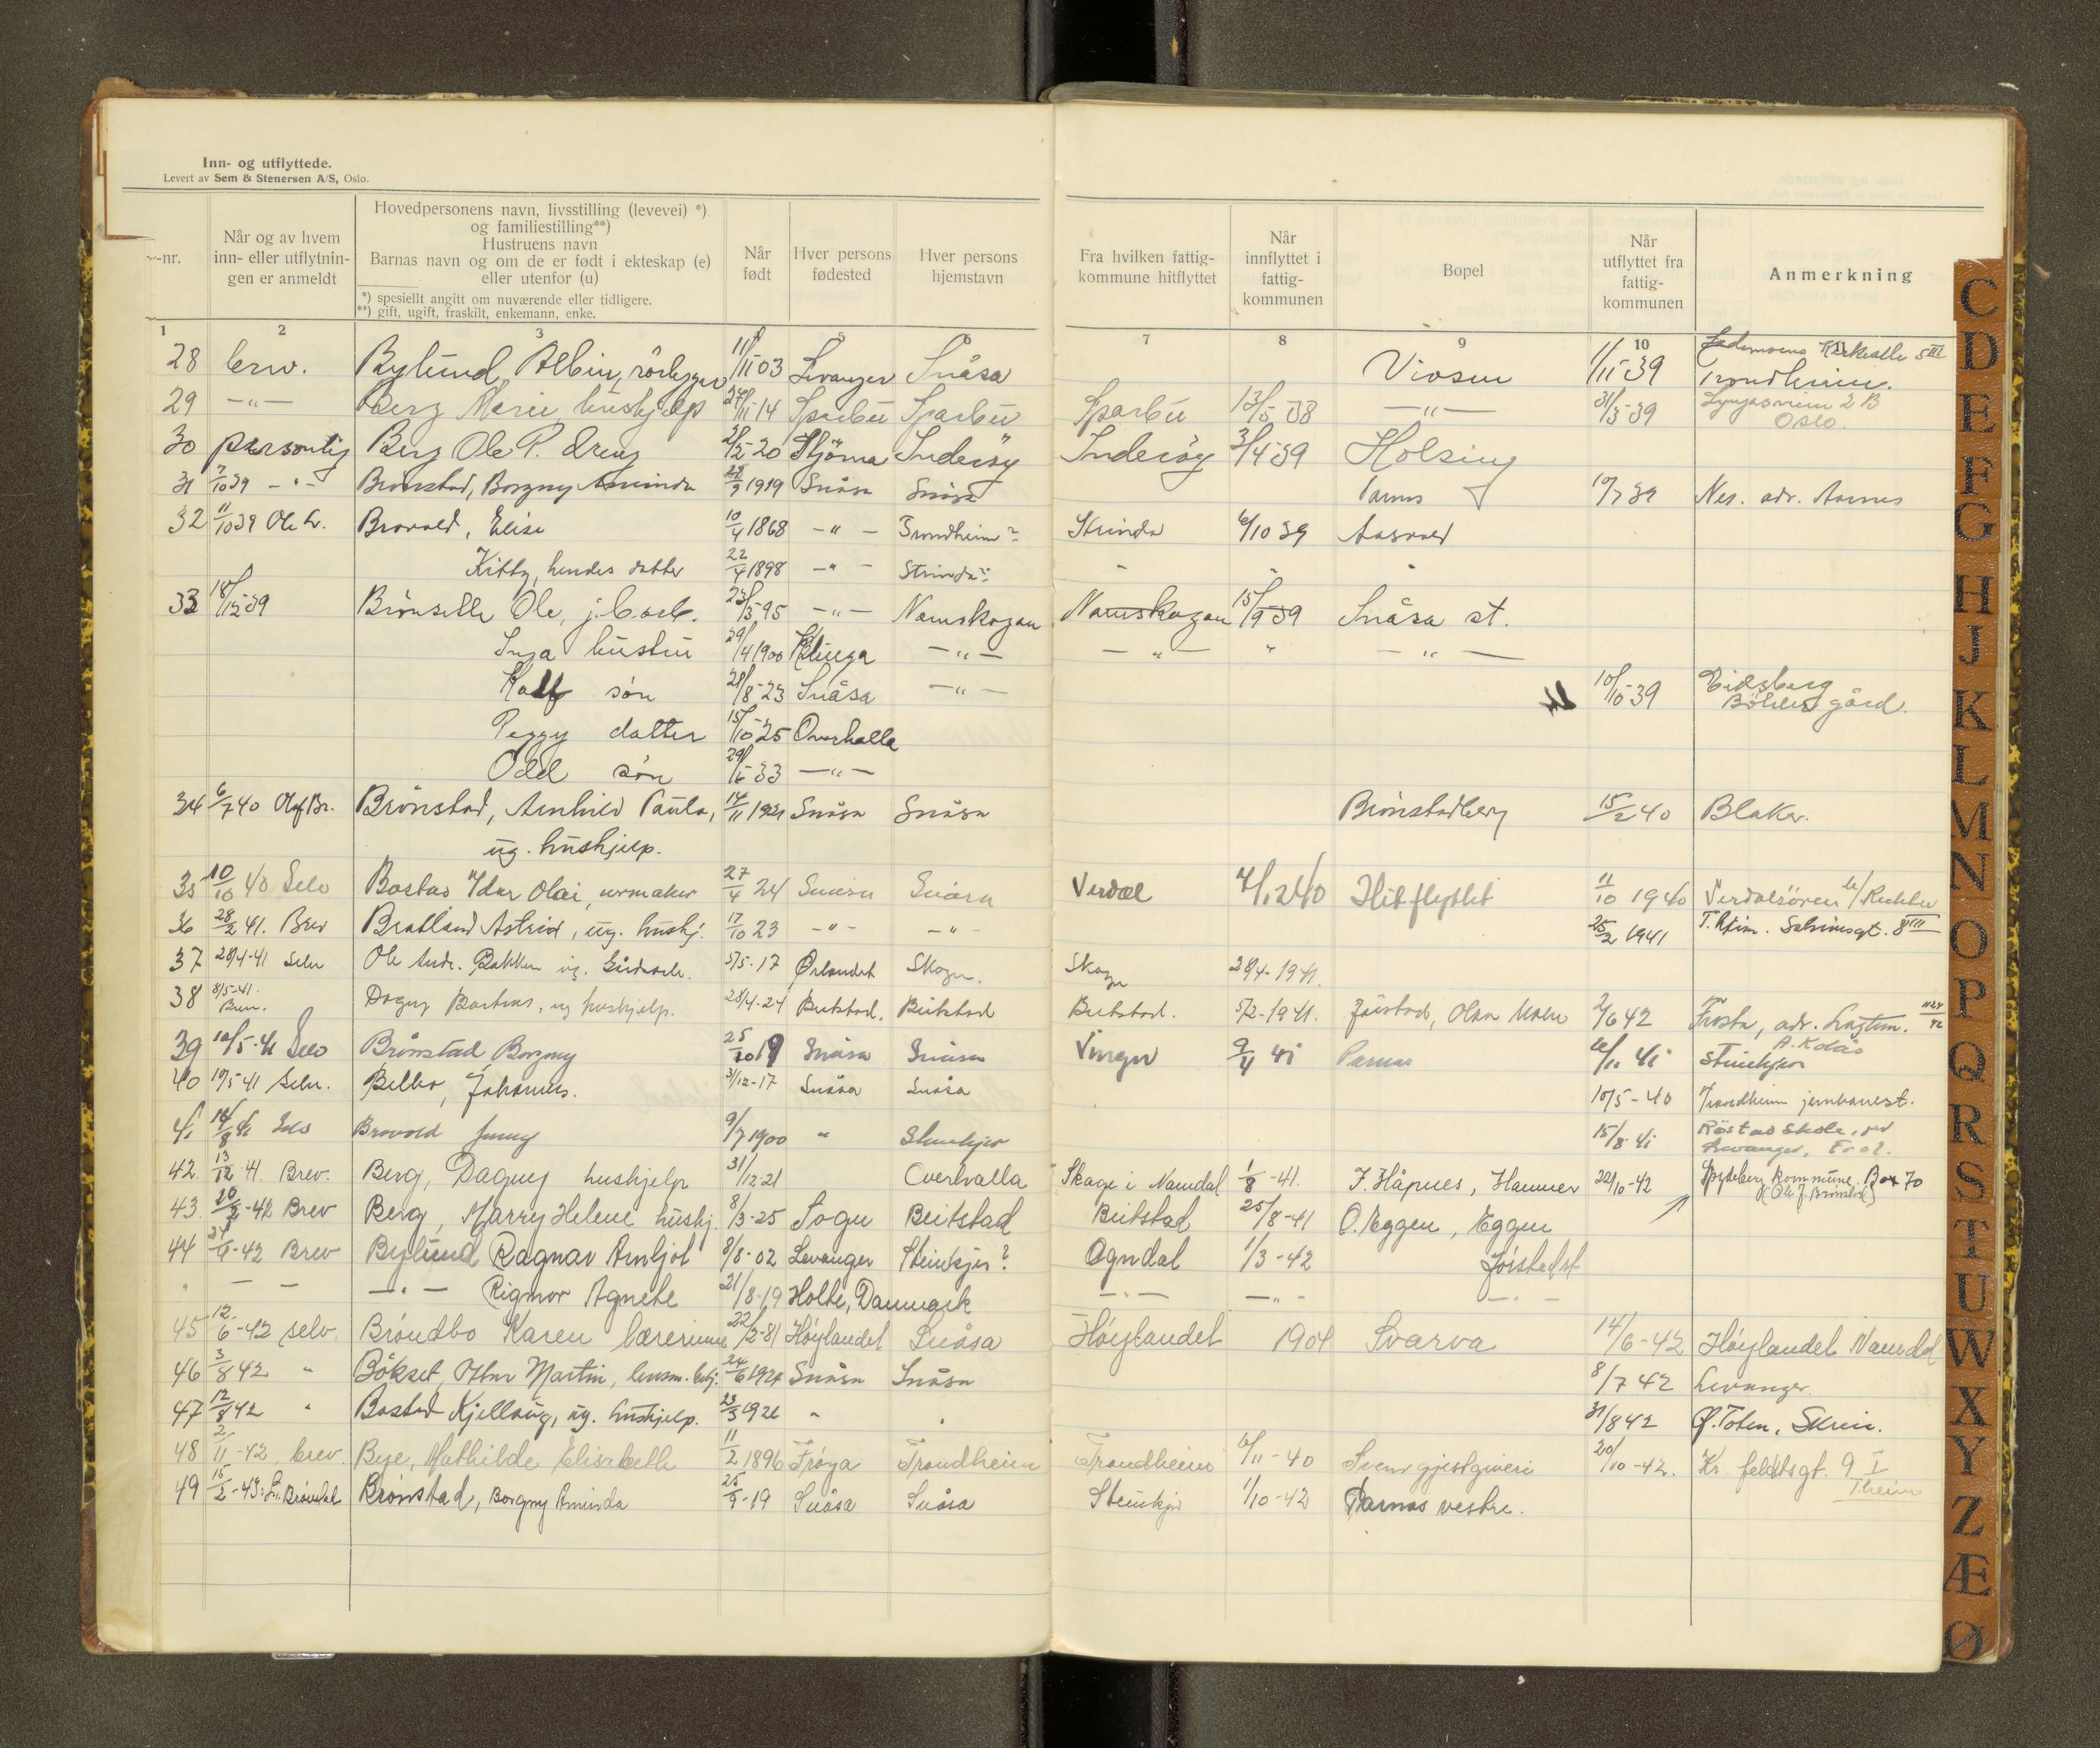 Inn- og utflyttede.
Levert av Sem & Stenersen A/S, Oslo.
-nr.
Når og av hvem inn- eller utflytnin- gen er anmeldt
Hovedpersonens navn, livsstilling (levevei) *) og familiestilling**)
Hustruens navn
Barnas navn og om de er født i ekteskap (e) eller utenfor (u)
*) spesiellt angitt om nuværende eller tidligere.
**) gift, ugift, fraskilt, enkemann, enke.
Når født
Hver persons fødested
Hver persons hjemstavn
Fra hvilken fattig- kommune hitflyttet
Når innflyttet i fattig- kommunen
Bopel
Når utflyttet fra fattig- kommunen
Anmerkning
1 2 3 5 7 8 9 10
28 brev. Bylund, Albin, rörlegger 11/11 03 Levanger Snåsa Viosen 1/11-39 Trondheim.
29 -"- Berg Marie hushjelp 27/11-14 Sparbu Sparbu Sparbu 13/5-38 -"- 31/3-39 2 B Oslo.
30 personlig Berg Ole P. dreng 2/2-20 Inderöy Inderöy 3/4-39 Holsing
31 7/10 39 -"- Brønstad, Borgny Aminda 25/9 1919 Snåsa Snåsa Parnas 10/7 39 Nes. adr. Aarnes
32 11/10 39 Brovold, Elise 10/4 1868 -"- Trondheim? Strinda 6/10 39
Kitty, hendes datter 22/4 1898 -"- Strinda?
33 18/12-39 Ole, j.b.arb. 23/5-95 -"- Namskogan Namskogan 15/9-39 Snåsa st.
Inga hustru 29/4 1900 Klinga -"- -"- " -"-
Kalf søn 21/8-23 Snåsa -"- 10/10-39 Eidsberg gård.
Peggy datter 15/10-25 Overhalla
Odd søn 29/6-33 -"-
34 6/7 40 Olaf Br. Brønstad, Arnhild Paula, 14/11 1921 Snåsa Snåsa Brønstadberg 15/2 40 Blaker.
ug. hushjelp.
35 10/10 40 Selv Bostad Idar Olai, urmaker 27/4 24 Snåsa Snåsa Verdal 7/1 240 Hitflyttet 11/10 1940 Verdalsören
36 28/2 41. Brev Bratland Astrid, ug. hushj. 17/10 23 -"- -"- 25/2 1941 T.heim. 8 VIII
37 28/4-41 Selv Ole Andr. Bakken ug. Gårdsarb. 5/5-17 Ørlandet Skogn. Skogn 28/4-1941.
38 8/5-41. Brev. Dagny ug hushjelp. 28/4-24 Beitstad. Beitstad Beitstad. 5/2-1941. Jörstad, Olav Moen 2/6 42 Frosta, adr. Lagtun.
39 10/5-41 Selv Brönstad Borgny 25/10 19 Snåsa Snåsa Vinger 9/4 41 Parnas Steinkjer
40 10/5 41 Selv. Belbo, Johannes. 31/12-17 Snåsa Snåsa 10/5-40 Trondheim jernbanest.
41 16/8 41 Selv Brovold Jenny 9/7 1900 " Steinkjer 15/8-41 Röstad Skole, ved Levanger, Frol.
42. 13/12 41. Brev. Berg, Dagny hushjelp 31/12-21 Overhalla Skage i Namdal 1/8-41. J. Håpnes, Hammer 22/10-42 Spydeberg kommune. Box 70
43. 20/2-42 Brev Berg, Marry Helene hushj. 8/3-25 Sogn Beitstad Beitstad 25/8-41 O. Eggen, Eggen
44 24/4-42 Brev Bylund Ragnar Arnljot 8/8-02 Levanger Steinkjer? Ogndal 1/3-42 Jørstad st
-"- Rigmor Agnete 21/8-19 Holte, Danmark -"- -"- -"-
45 12/6-42 selv. Bröndbo Karen lærerinne 22/2-81 Höylandet Snåsa Höylandet 1904 Svarva 14/6-42 Höylandet Namdal
46 3/8 42 " Bökset, Ottar Martin, 24/6 1924 Snåsa Snåsa 8/7 42 Levanger.
47 12/8 42 " Bostad Kjellaug, ug. hushjelp. 23/3 1921 " " 31/8 42 Ø. Toten, Skreia.
48 2/11-42. brev. Bye, Mathilde Elisabeth 11/2 1896 Frøya Trondheim Trondheim 6/11-40 gjestgiveri 20/10-42. Kr. feldtsgt. 9 I T.heim
49 15/2-43: Brønstad, Borgny Aminda 25/9-19 Snåsa Snåsa Steinkjer 1/10-42 Parnas vestre.
C
D
E
F
G
H
J
K
L
M
N
O
P
Q
R
S
T
U
W
X
Y
Z
Æ
Ø